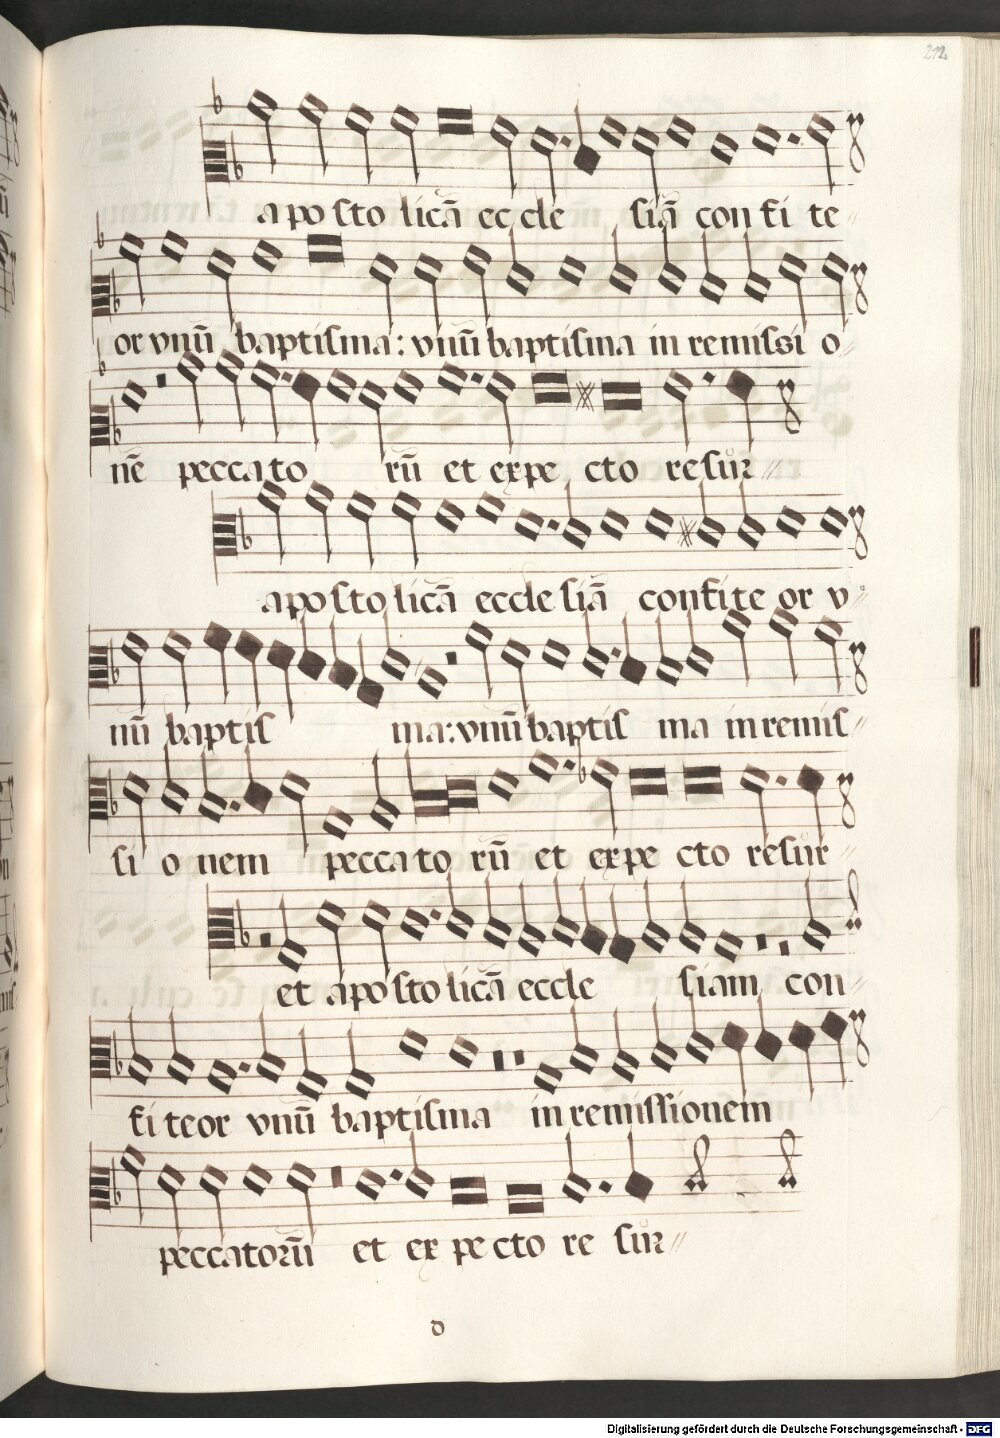 212
a po sto licā ec cle siā con fi te
or vnū baptisma: vnū baptisma in remissi o
nē peccato rū et expe cto resur
apostolicā ecclesiā confiteor v
nū baptis ma: vnū baptis ma in remis
si o nem peccato rū et expe cto resur
et apostolicā eccle siam con
fi teor vnū baptisma in remissionem
peccatorū et ex pe cto re sur
d
Digitalisierung gefördert durch die Deutsche Forschungsgemeinschaft - DFG